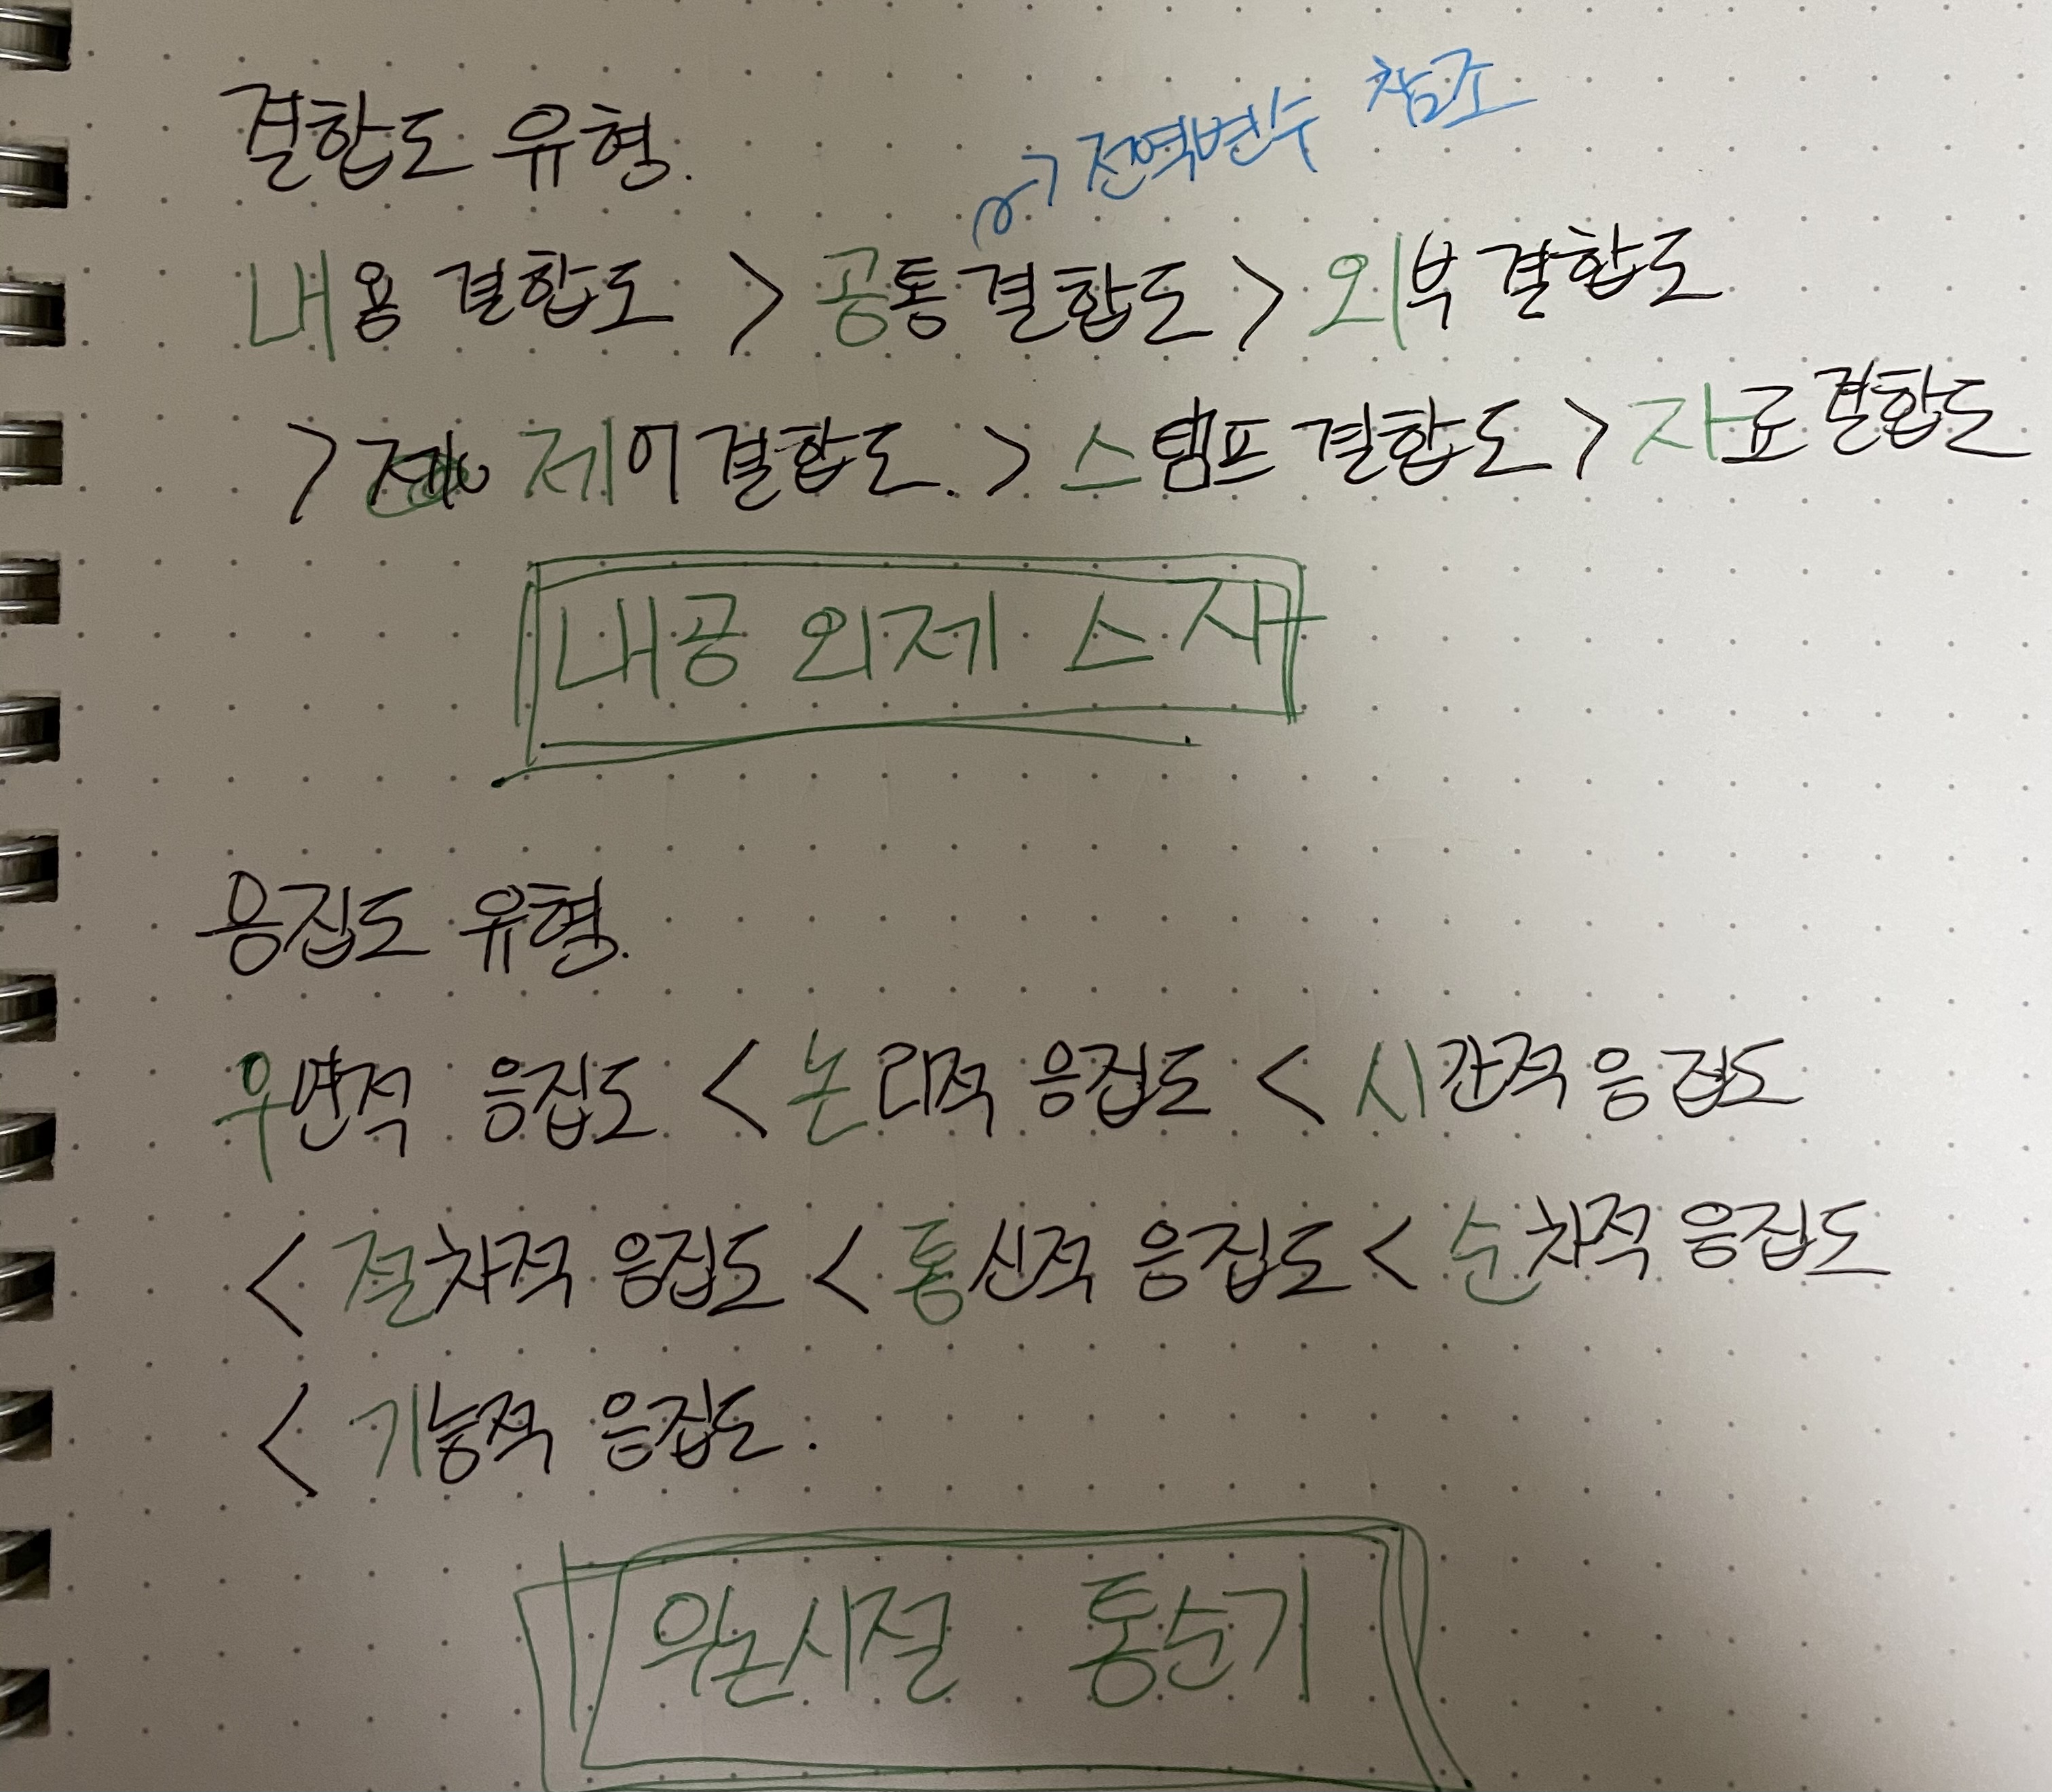 결합도 유형.
전역변수 참조
내용 결합도 > 공통 결합도 > 외부 결합도
> 제어 결합도. > 스탬프 결합도 > 자료 결합도
내공 외제 스자
응집도 유형.
우연적 응집도 < 논리적 응집도 < 시간적 응집도
< 절차적 응집도 < 통신적 응집도 < 순차적 응집도
< 기능적 응집도.
우논시절 통순기